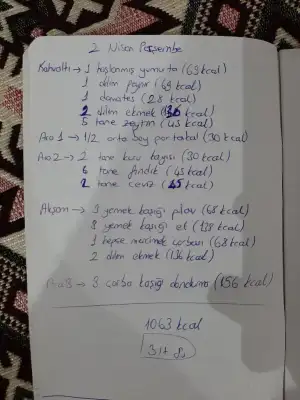 2 Nisan Perşembe
Kahvaltı → 1 haşlanmış yumurta (69 kcal)
1 dilim peynir (69 kcal)
1 domates (28 kcal)
2 dilim ekmek (136 kcal)
5 tane zeytin (45 kcal)
Ara 1 → 1/2 orta boy portakal (30 kcal)
Ara 2 → 2 tane kuru kayısı (30 kcal)
6 tane fındık (45 kcal)
2 tane ceviz (45 kcal)
Akşam → 3 yemek kaşığı pilav (68 kcal)
3 yemek kaşığı et (138 kcal)
1 kepçe mercimek çorbası (68 kcal)
2 dilim ekmek (136 kcal)
Ara 3 → 3 çorba kaşığı dondurma (156 kcal)
1063 kcal